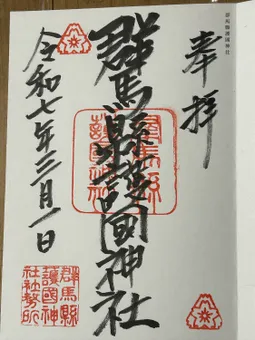 群馬縣護國神社
奉拝
群馬縣護國神社
群馬縣
護國神
社社務所
令和七年三月一日